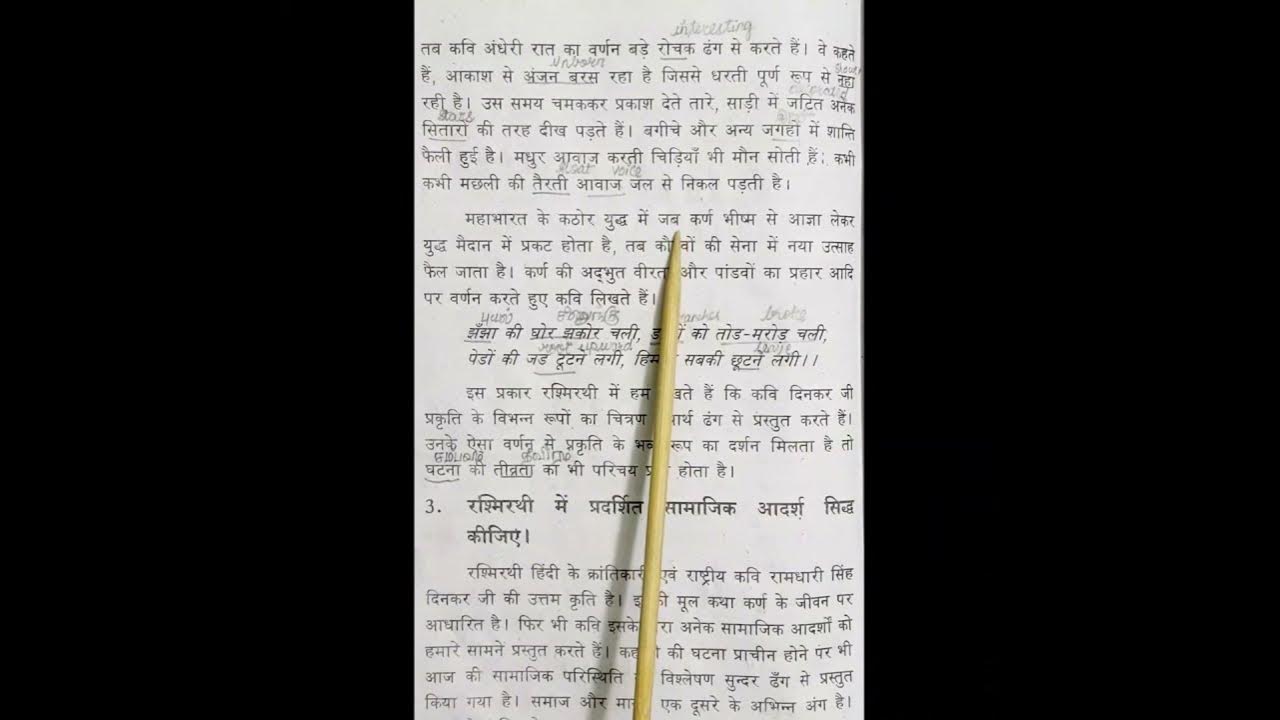 interesting
तब कवि अंधेरी रात का वर्णन बड़े रोचक ढंग से करते हैं। वे कहते
हैं, आकाश से अंजन बरस रहा है जिससे धरती पूर्ण रूप से नहा
रही है। उस समय चमककर प्रकाश देते तारे, साड़ी में जटित अनेक
stars
सितारों की तरह दीख पड़ते हैं। बगीचे और अन्य जगहों में शान्ति
फैली हुई है। मधुर आवाज करती चिड़ियाँ भी मौन सोती हैं; कभी
float voice
कभी मछली की तैरती आवाज जल से निकल पड़ती है।
महाभारत के कठोर युद्ध में जब कर्ण भीष्म से आज्ञा लेकर
युद्ध मैदान में प्रकट होता है, तब की सेना में नया उत्साह
फैल जाता है। कर्ण की अद्भुत और पांडवों का प्रहार आदि
पर वर्णन करते हुए कवि लिखते हैं।
புயல் broke
झँझा की घोर झकोर चली, को तोड-मरोड़ चली,
पेडों की जड टूटने लगी, सबकी छूटने लगी।।
इस प्रकार रश्मिरथी में हम हैं कि कवि दिनकर जी
प्रकृति के विभन्न रूपों का चित्रण ढंग से प्रस्तुत करते हैं।
उनके ऐसा वर्णन से प्रकृति के रूप का दर्शन मिलता है तो
घटना की तीव्रता का भी परिचय होता है।
3. रश्मिरथी में प्रदर्शित सामाजिक आदर्श सिद्ध
कीजिए।
रश्मिरथी हिंदी के एवं राष्ट्रीय कवि रामधारी सिंह
दिनकर जी की उत्तम कृति है। मूल कथा कर्ण के जीवन पर
आधारित है। फिर भी कवि अनेक सामाजिक आदर्शों को
हमारे सामने प्रस्तुत करते हैं। की घटना प्राचीन होने पर भी
आज की सामाजिक परिस्थिति विश्लेषण सुन्दर ढँग से प्रस्तुत
किया गया है। समाज और एक दूसरे के अभिन्न अंग है।